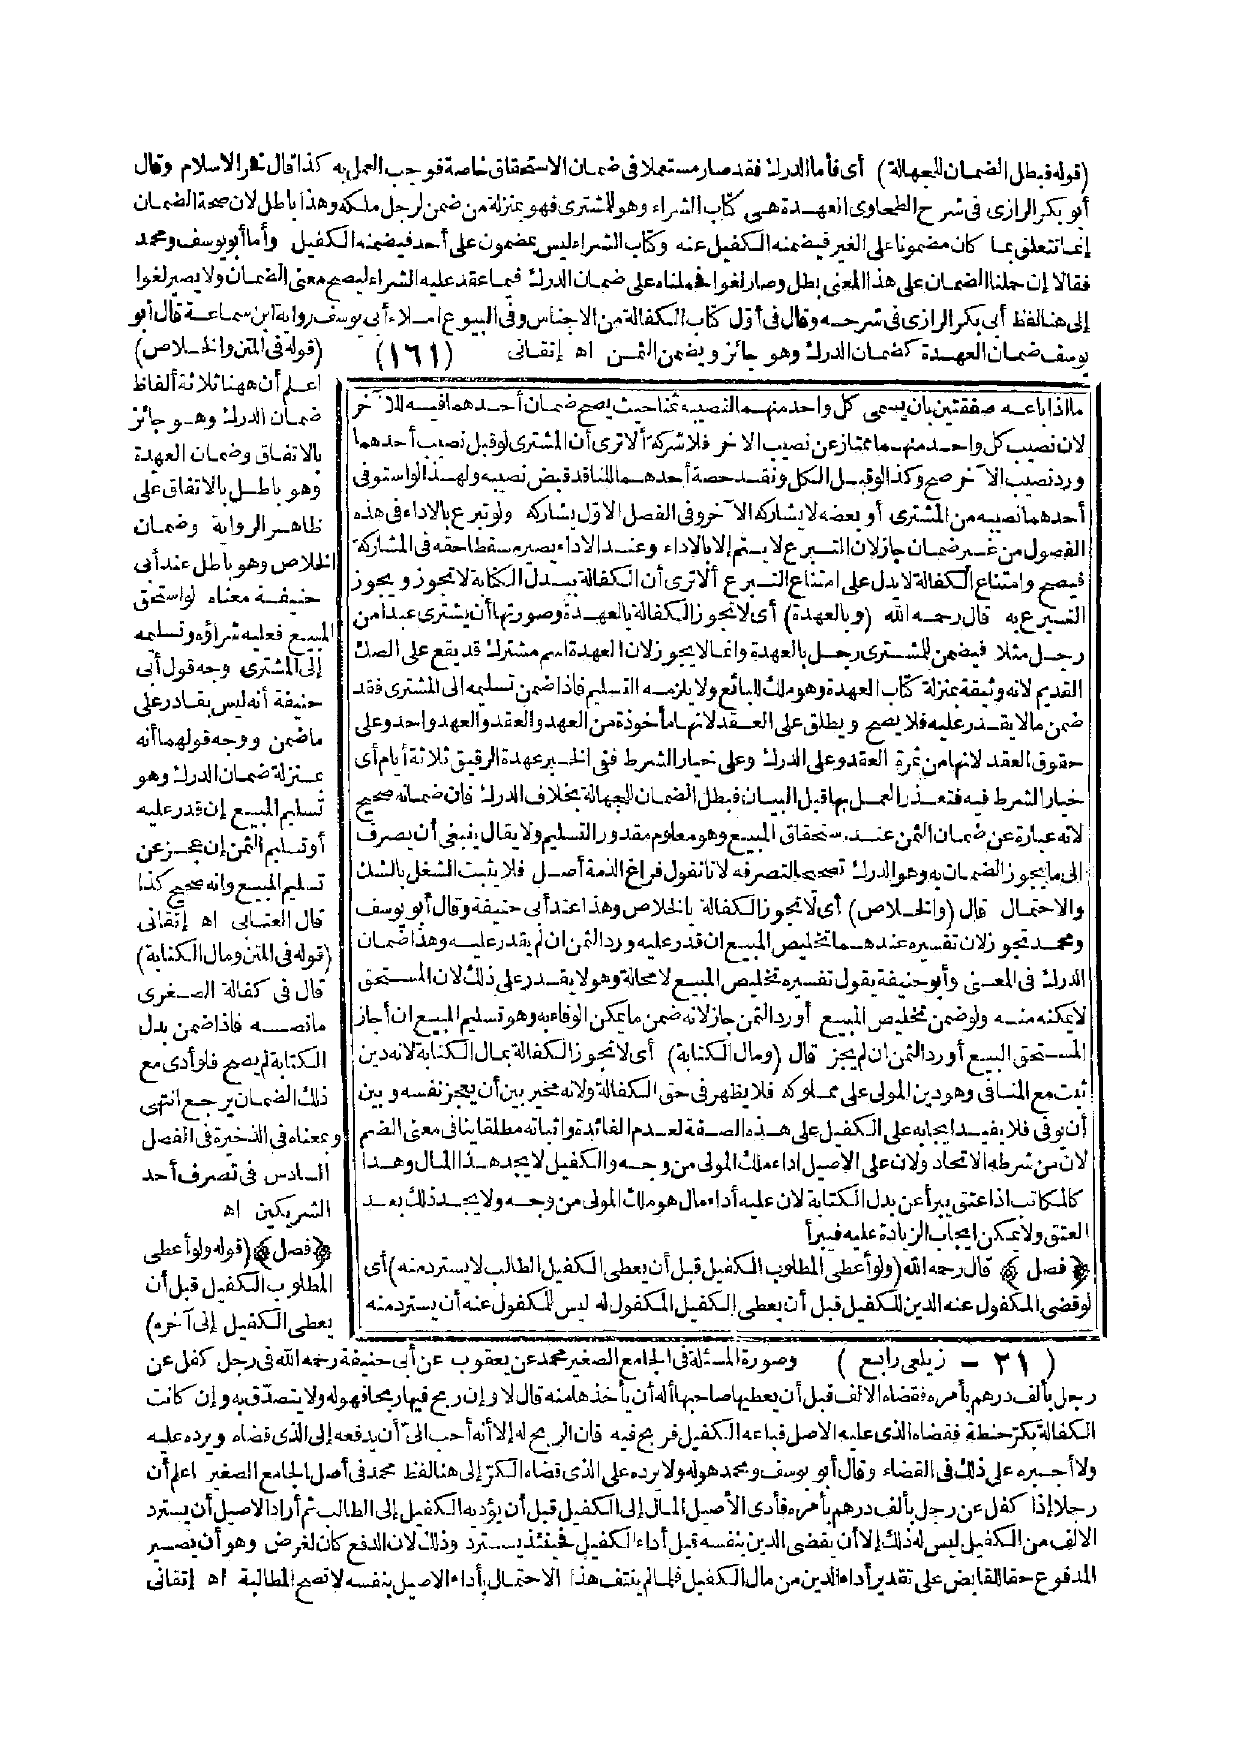 (قوله فبطل الضمان للجهالة) أى فأما الدرك فقد صار مستعملا فى ضمان الاستحقاق خاصة فوجب العمل به كذا قال فخر الاسلام وقال
أبو بكر الرازى فى شرح الطحاوى العهدة هى كتاب الشراء وهو للمشترى فهو بمنزلة من ضمن لرجل ملكه وهذا باطل لان صحة الضمان
إنما تتعلق بما كان مضمونا على الغير فيضمنه الكفيل عنه وكتاب الشراء ليس بمضمون على أحد فيضمنه الكفيل وأما أبو يوسف ومحمد
فقالا إن حملنا الضمان على هذا المعنى بطل وصار لغوا فحملناه على ضمان الدرك فيما عقد عليه الشراء ليصح معنى الضمان ولا يصير لغوا
إلى هنا لفظ أبى بكر الرازى فى شرحه وقال فى أول كتاب الكفالة من الاجناس وفى البيوع املاء أبى يوسف رواية ابن سماعة قال أبو
يوسف ضمان العهدة كضمان الدرك وهو جائز ويضمن الثمن اه إتقانى (١٦١) (قوله فى المتن والخلاص)
اعلم أن ههنا ثلاثة ألفاظ
ضمان الدرك وهو جائز
بالاتفاق وضمان العهدة
وهو باطل بالاتفاق على
ظاهر الرواية وضمان
الخلاص وهو باطل عند أبى
حنيفة معناه لو استحق
المبيع فعليه شراؤه وتسليمه
إلى المشترى وجه قول أبى
حنيفة أنه ليس بقادر على
ما ضمن ووجه قولهما أنه
بمنزلة ضمان الدرك وهو
تسليم المبيع إن قدر عليه
أو تسليم الثمن إن عجز عن
تسليم المبيع وانه صحيح كذا
قال العتابى اه إتقانى
(قوله فى المتن ومال الكتابة)
قال فى كفالة الصغرى
ما نصه فاذا ضمن بدل
الكتابة لم يصح فلو أدى مع
ذلك الضمان يرجع انتهى
وبمعناه فى الذخيرة فى الفصل
السادس فى تصرف أحد
الشريكين اه
﴿فصل﴾ (قوله ولو أعطى
المطلوب الكفيل قبل أن
يعطى الكفيل إلى آخره)
ما اذا باعه صفقتين بان يسمى كل واحد منهما لنصيبه ثمنا حيث يصح ضمان أحدهما فيه للآخر
لان نصيب كل واحد منهما ممتاز عن نصيب الآخر فلا شركة ألا ترى أن المشترى لو قبل نصيب أحدهما
ورد نصيب الآخر صح وكذا لو قبل الكل ونقد حصة أحدهما للناقد قبض نصيبه ولهذا لو استوفى
أحدهما نصيبه من المشترى أو بعضه لا يشاركه الآخر وفى الفصل الاول يشاركه ولو تبرع بالاداء فى هذه
الفصول من غير ضمان جاز لان التبرع لا يتم إلا بالاداء وعند الاداء يصير مسقطا حقه فى المشاركة
فيصح وامتناع الكفالة لا يدل على امتناع التبرع ألا ترى أن الكفالة ببدل الكتابة لا تجوز ويجوز
التبرع به قال رحمه الله (وبالعهدة) أى لا تجوز الكفالة بالعهدة وصورتها أن يشترى عبدا من
رجل مثلا فيضمن للمشترى رجل بالعهدة وانما لا يجوز لان العهدة اسم مشترك قد يقع على الصك
القديم لانه وثيقة بمنزلة كتاب العهدة وهو ملك البائع ولا يلزمه التسليم فاذا ضمن تسليمه الى المشترى فقد
ضمن ما لا يقدر عليه فلا يصح ويطلق على العقد لانها مأخوذة من العهد والعقد والعهد واحد وعلى
حقوق العقد لانها من ثمرة العقد وعلى الدرك وعلى خيار الشرط ففى الخبر عهدة الرقيق ثلاثة أيام أى
خيار الشرط فيه فتعذر العمل بها قبل البيان فبطل الضمان للجهالة بخلاف الدرك فان ضمانه صحيح
لانه عبارة عن ضمان الثمن عند استحقاق المبيع وهو معلوم مقدور التسليم ولا يقال ينبغى أن يصرف
الى ما يجوز الضمان به وهو الدرك تصحيحا لتصرفه لانا نقول فراغ الذمة أصل فلا يثبت الشغل بالشك
والاحتمال قال (والخلاص) أى لا تجوز الكفالة بالخلاص وهذا عند أبى حنيفة وقال أبو يوسف
ومحمد تجوز لان تفسيره عندهما تخليص المبيع ان قدر عليه ورد الثمن ان لم يقدر عليه وهذا ضمان
الدرك فى المعنى وأبو حنيفة يقول تفسيره تخليص المبيع لا محالة وهو لا يقدر على ذلك لان المستحق
لا يمكنه منه ولو ضمن تخليص المبيع أو رد الثمن جاز لانه ضمن ما يمكن الوفاء به وهو تسليم المبيع ان أجاز
المستحق البيع أو رد الثمن ان لم يجز قال (ومال الكتابة) أى لا تجوز الكفالة بمال الكتابة لانه دين
ثبت مع المنافى وهو دين المولى على مملوكه فلا يظهر فى حق الكفالة ولانه مخير بين أن يعجز نفسه وبين
أن يوفى فلا يفيد ايجابه على الكفيل على هذه الصفة لعدم الفائدة واثباته مطلقا ينافى معنى الضم
لان من شرطه الاتحاد ولان على الاصيل اداء ملك المولى من وجه والكفيل لا يجد هذا المال وهذا
كالمكاتب اذا عتق يبرأ عن بدل الكتابة لان عليه أداء مال هو ملك المولى من وجه ولا يجد ذلك بعد
العتق ولا يمكن ايجاب الزيادة عليه فيبرأ
﴿فصل﴾ قال رحمه الله (ولو أعطى المطلوب الكفيل قبل أن يعطى الكفيل الطالب لا يسترد منه) أى
لو قضى المكفول عنه الدين للكفيل قبل أن يعطى الكفيل المكفول له ليس للمكفول عنه أن يسترد منه
(٢١ - زيلعى رابع) وصورة المسئلة فى الجامع الصغير محمد عن يعقوب عن أبى حنيفة رحمه الله فى رجل كفل عن
رجل بألف درهم بأمره فقضاه الالف قبل أن يعطيها صاحبها أله أن يأخذها منه قال لا وإن ربح فيها ربحا فهو له ولا يتصدق به وإن كانت
الكفالة بكر حنطة فقضاه الذى عليه الاصل فباعه الكفيل فربح فيه فان الربح له إلا أنه أحب الىّ أن يدفعه إلى الذى قضاه ويرده عليه
ولا أجبره على ذلك فى القضاء وقال أبو يوسف ومحمد هو له ولا يرده على الذى قضاه الكر إلى هنا لفظ محمد فى أصل الجامع الصغير اعلم أن
رجلا إذا كفل عن رجل بألف درهم بأمره فأدى الأصيل المال إلى الكفيل قبل أن يؤديه الكفيل إلى الطالب ثم أراد الاصيل أن يسترد
الالف من الكفيل ليس له ذلك إلا أن يقضى الدين بنفسه قبل أداء الكفيل فحينئذ يسترد وذلك لان الدفع كان لغرض وهو أن يصير
المدفوع حقا للقابض على تقدير أداء الدين من مال الكفيل فما لم ينتف هذا الاحتمال بأداء الاصيل بنفسه لا تصح المطالبة اه إتقانى